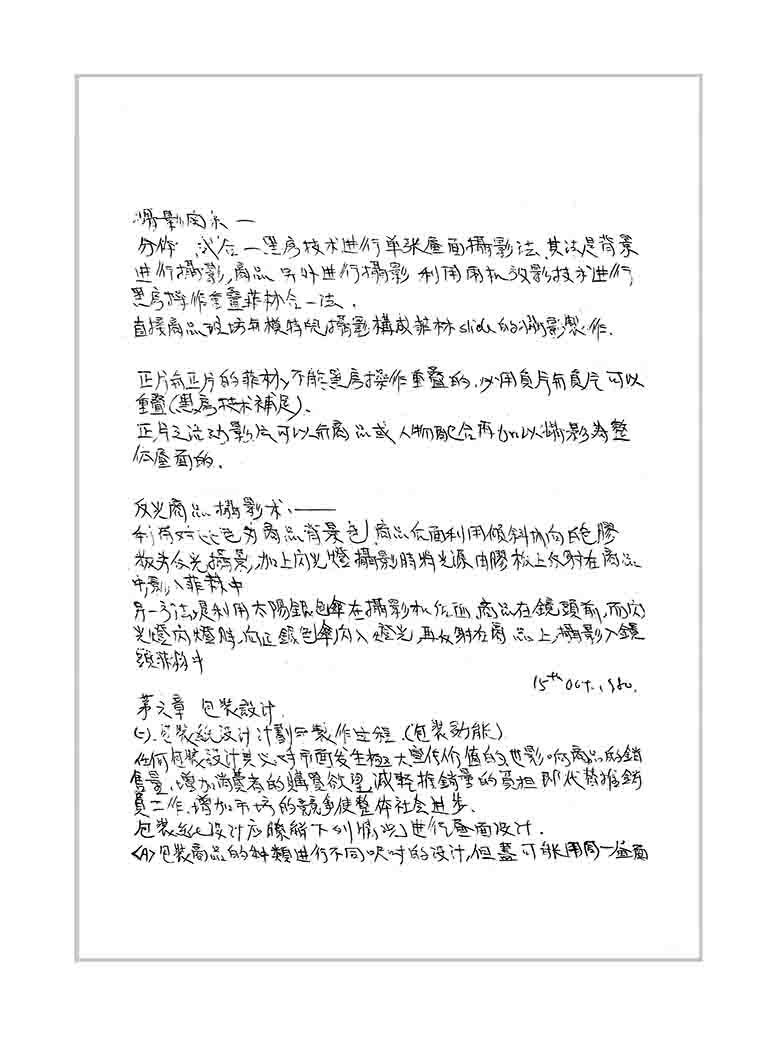 攝影関系一
分作 试合一黑房技术進行单张画面攝影法,其法是背景
進行攝影,商品 另外進行攝影 利用用机放影技术進行
黑房操作重疊菲林合一法.
直接商品現场与模特兒攝影構成菲林 slide 的攝影製作.
正片和正片的菲林,不能黑房操作重疊的,必用負片和負片可以
重疊(黑房技术補足).
正片之流动影片可以和商品或人物配合再加以攝影為整
体画面的.
反光商品攝影术.——
利用对比色为商品背景色,商品后面利用傾斜方向白色膠
板为反光攝影,加上闪光燈攝影時将光源由膠板上反射在商品
中,影入菲林中
另一方法,是利用太陽銀色傘在攝影机后面,商品在鏡頭前,而闪
光燈闪燈時,向正銀色傘闪入燈光,再反射在商品上,攝影入鏡
頭菲林中
15th Oct. 1980.
第六章 包装設计.
(一).包装紙设计計劃与製作过程.(包装功能)
任何包装设计其必对市面发生極大宣传价值的,也影响商品的銷
售量,增加消費者的購買欲望,減輕推銷員的負担即代替推銷
員工作.增加市场的競争使整体社会進步.
包装紙设计应瞭解下列情况進行画面设计.
<A>包装商品的种類進行不同呎吋的设计,但盖可能用同一画面